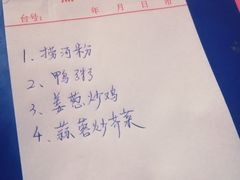 台号： 年 月 日
1、捞河粉
2、鸭粥
3、姜葱炒鸡
4、蒜蓉炒芥菜